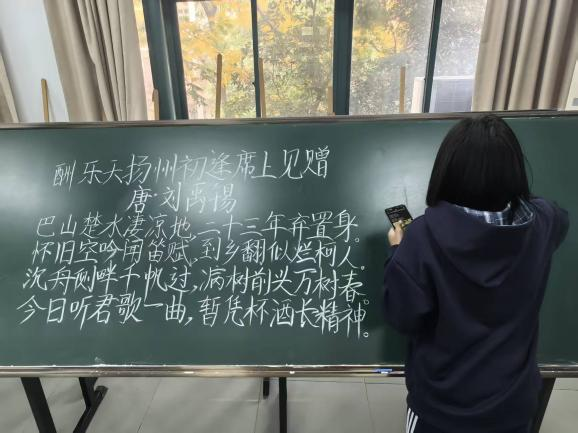 酬乐天扬州初逢席上见赠
唐·刘禹锡
巴山楚水凄凉地,二十三年弃置身。
怀旧空吟闻笛赋,到乡翻似烂柯人。
沉舟侧畔千帆过,病树前头万树春。
今日听君歌一曲,暂凭杯酒长精神。